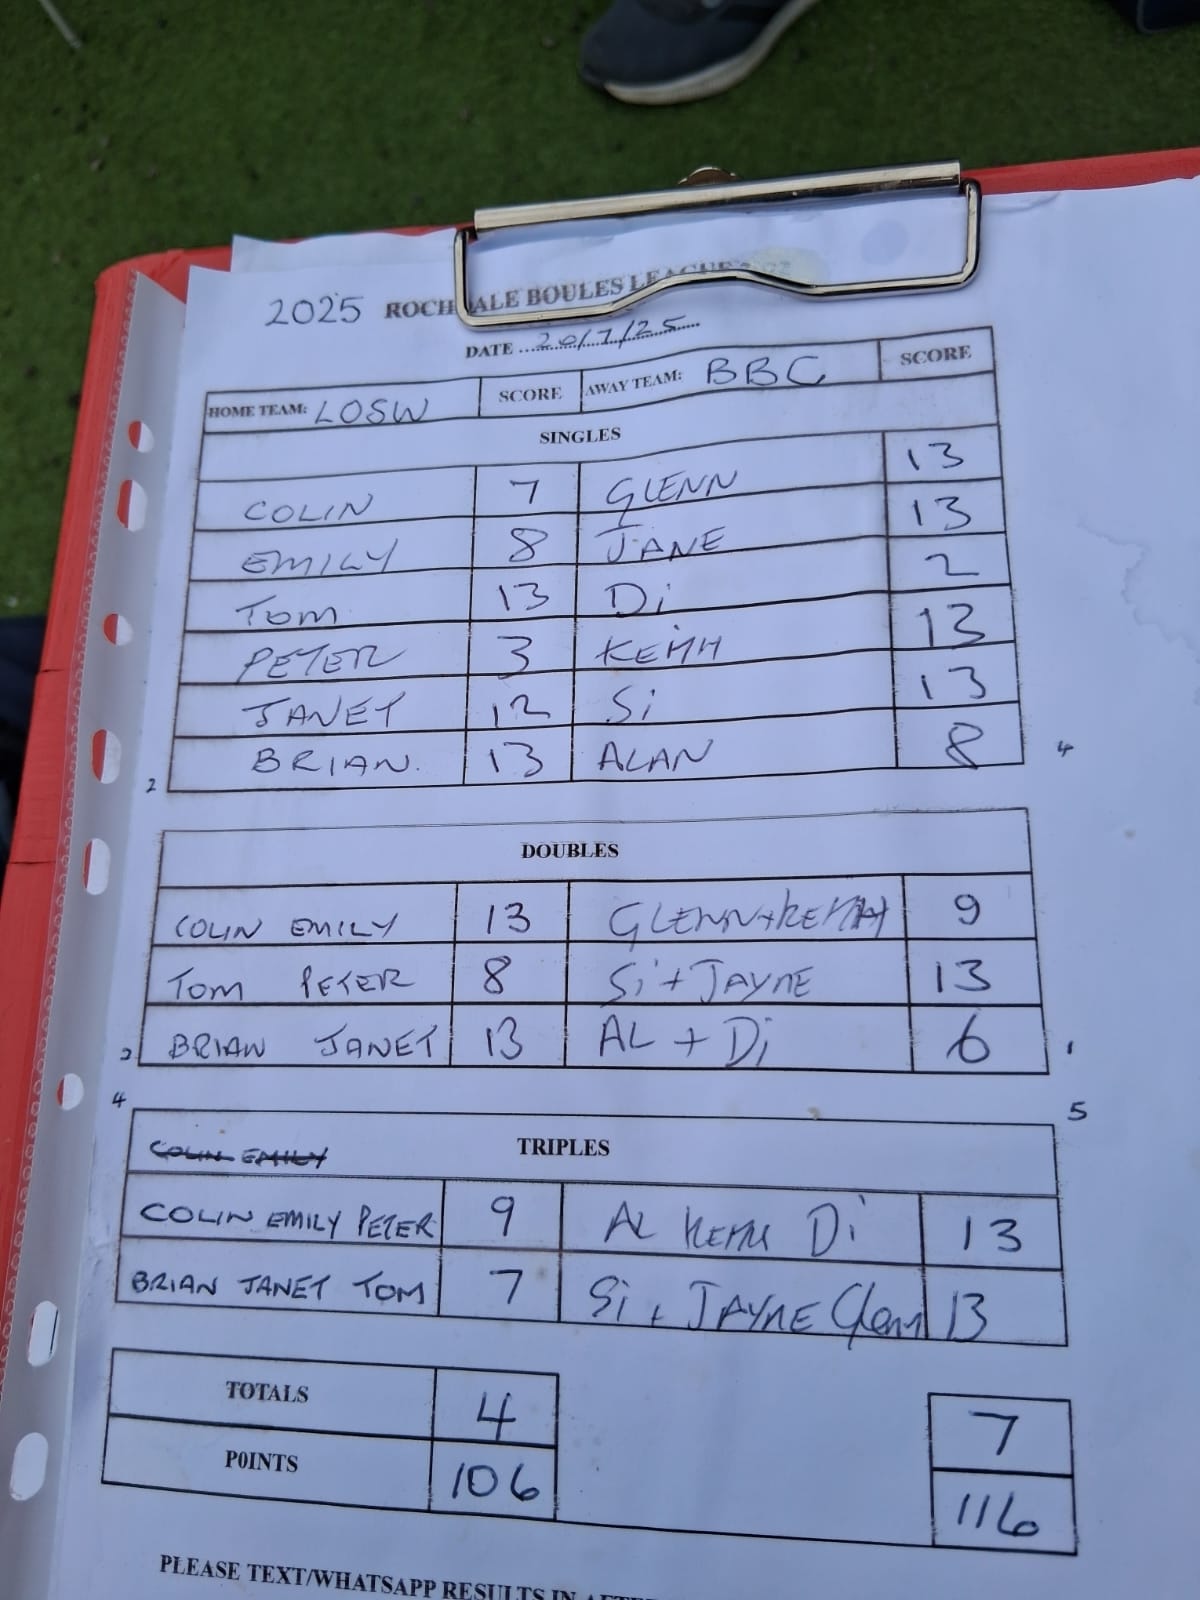 2025 ROCHDALE BOULES LEAGUE
DATE 20/7/25
HOME TEAM: LOSW SCORE AWAY TEAM: BBC SCORE
SINGLES
COLIN 7 GLENN 13
EMILY 8 JANE 13
TOM 13 Di 2
PETER 3 KEITH 13
JANET 12 Si 13
BRIAN. 13 ALAN 8
2 4
DOUBLES
COLIN EMILY 13 GLENN+KEITH 9
TOM PETER 8 Si + JAYNE 13
BRIAN JANET 13 AL + Di 6
2 1
4 5
TRIPLES
COLIN EMILY
COLIN EMILY PETER 9 AL KEITH Di 13
BRIAN JANET TOM 7 Si + JAYNE Glenn 13
TOTALS 4 7
POINTS 106 116
PLEASE TEXT/WHATSAPP RESULTS IN